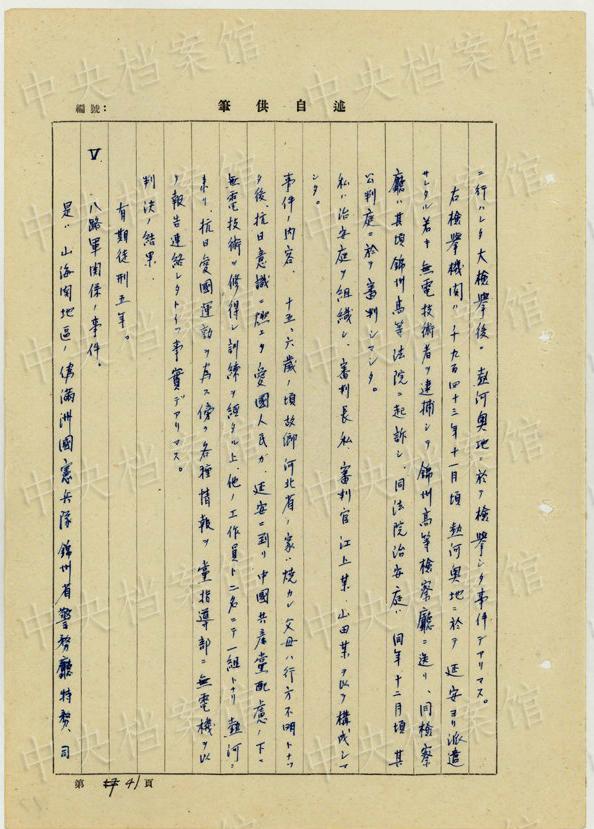 編號：
述自供筆
ニ行ハレタ大檢擧後。熱河奥地ニ於テ檢擧シタ事件デアリマス。
右檢擧機関ハ千九百四十三年十一月頃熱河奥地ニ於テ延安ヨリ派遣
サレタル若キ無電技術者ヲ逮捕シテ錦州高等檢察廳ニ送リ、同檢察
廳ハ其頃錦州高等法院ニ起訴シ、同法院治安庭ハ同年十二月頃其
公判庭ニ於テ審判シマシタ。
私ハ治安庭ヲ組織シ、審判長私、審判官江上某、山田某ヲ以テ構成シマ
シタ。
事件ノ内容、十五、六歳ノ頃故郷河北省ノ家ハ焼カレ父母ハ行方不明トナツ
タ後、抗日意識ニ燃エタ愛國人民ガ、延安ニ到リ中國共産黨配慮ノ下ニ
無電技術ヲ修得シ訓練ヲ經タル上、他ノ工作員ト二名ニテ一組トナリ熱河ニ
来リ、抗日愛國運動ヲ為ス傍ラ各種情報ヲ黨指導部ニ無電機ヲ以
テ報告連絡シタトイフ事實デアリマス。
判決ノ結果、
有期徒刑五年。
V 八路軍関係ノ事件。
是ハ山海関地區ノ偽満洲國憲兵隊、錦州省警務廳特務、司
第 41 頁
中央档案馆